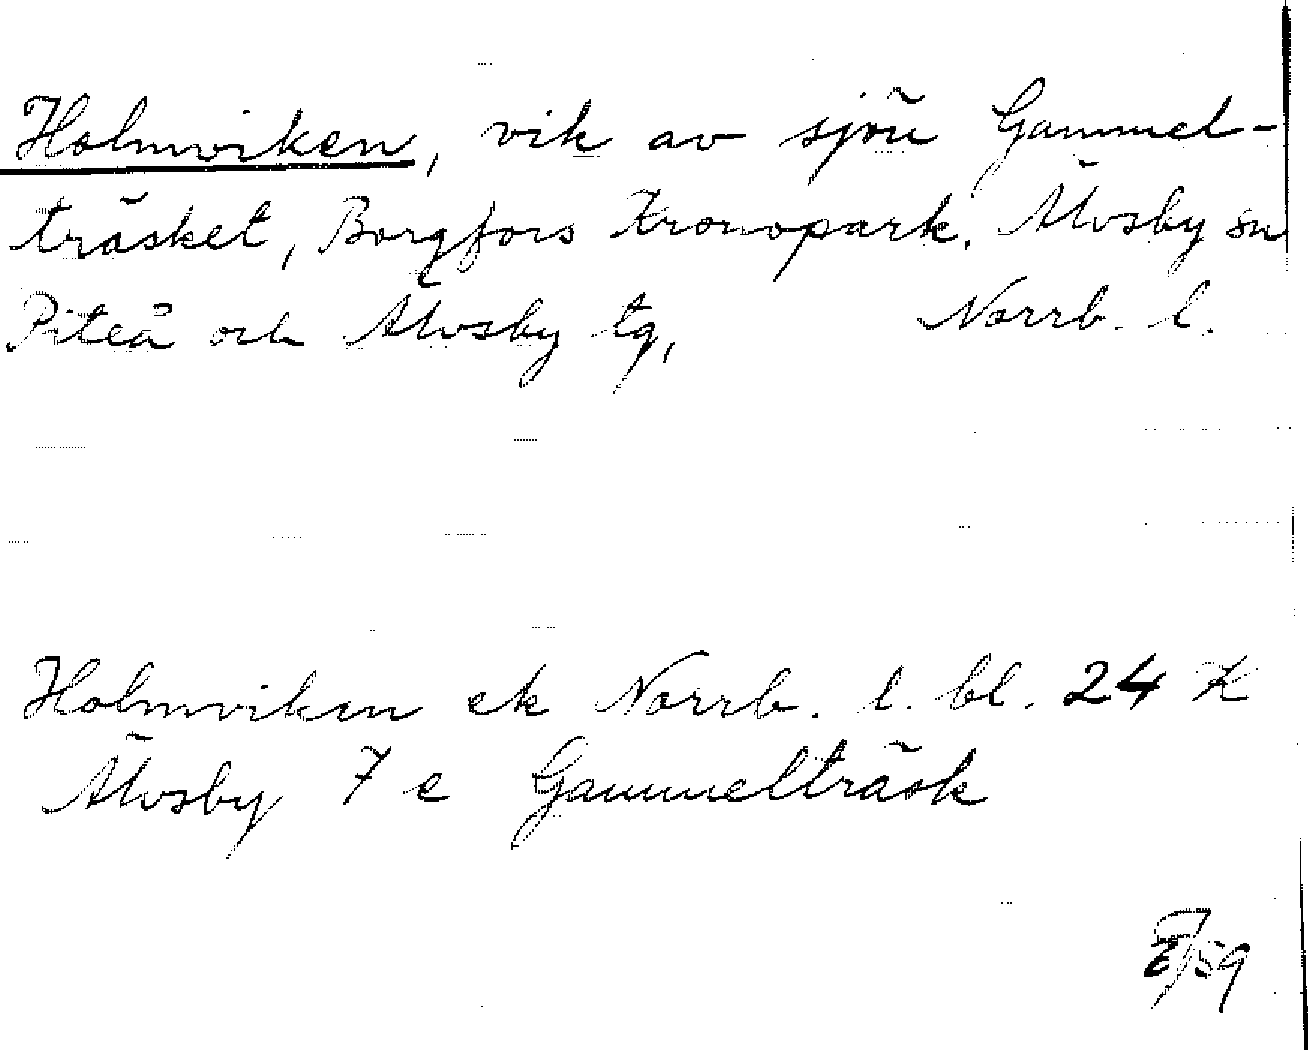 Holmviken, vik av sjön Gammel-
träsket, Borgfors Kronopark, Älvsby sn
Piteå och Älvsby tg, Norrb. l.
Holmviken ek Norrb. l. bl. 24 K
Älvsby 7 e Gammelträsk
/59